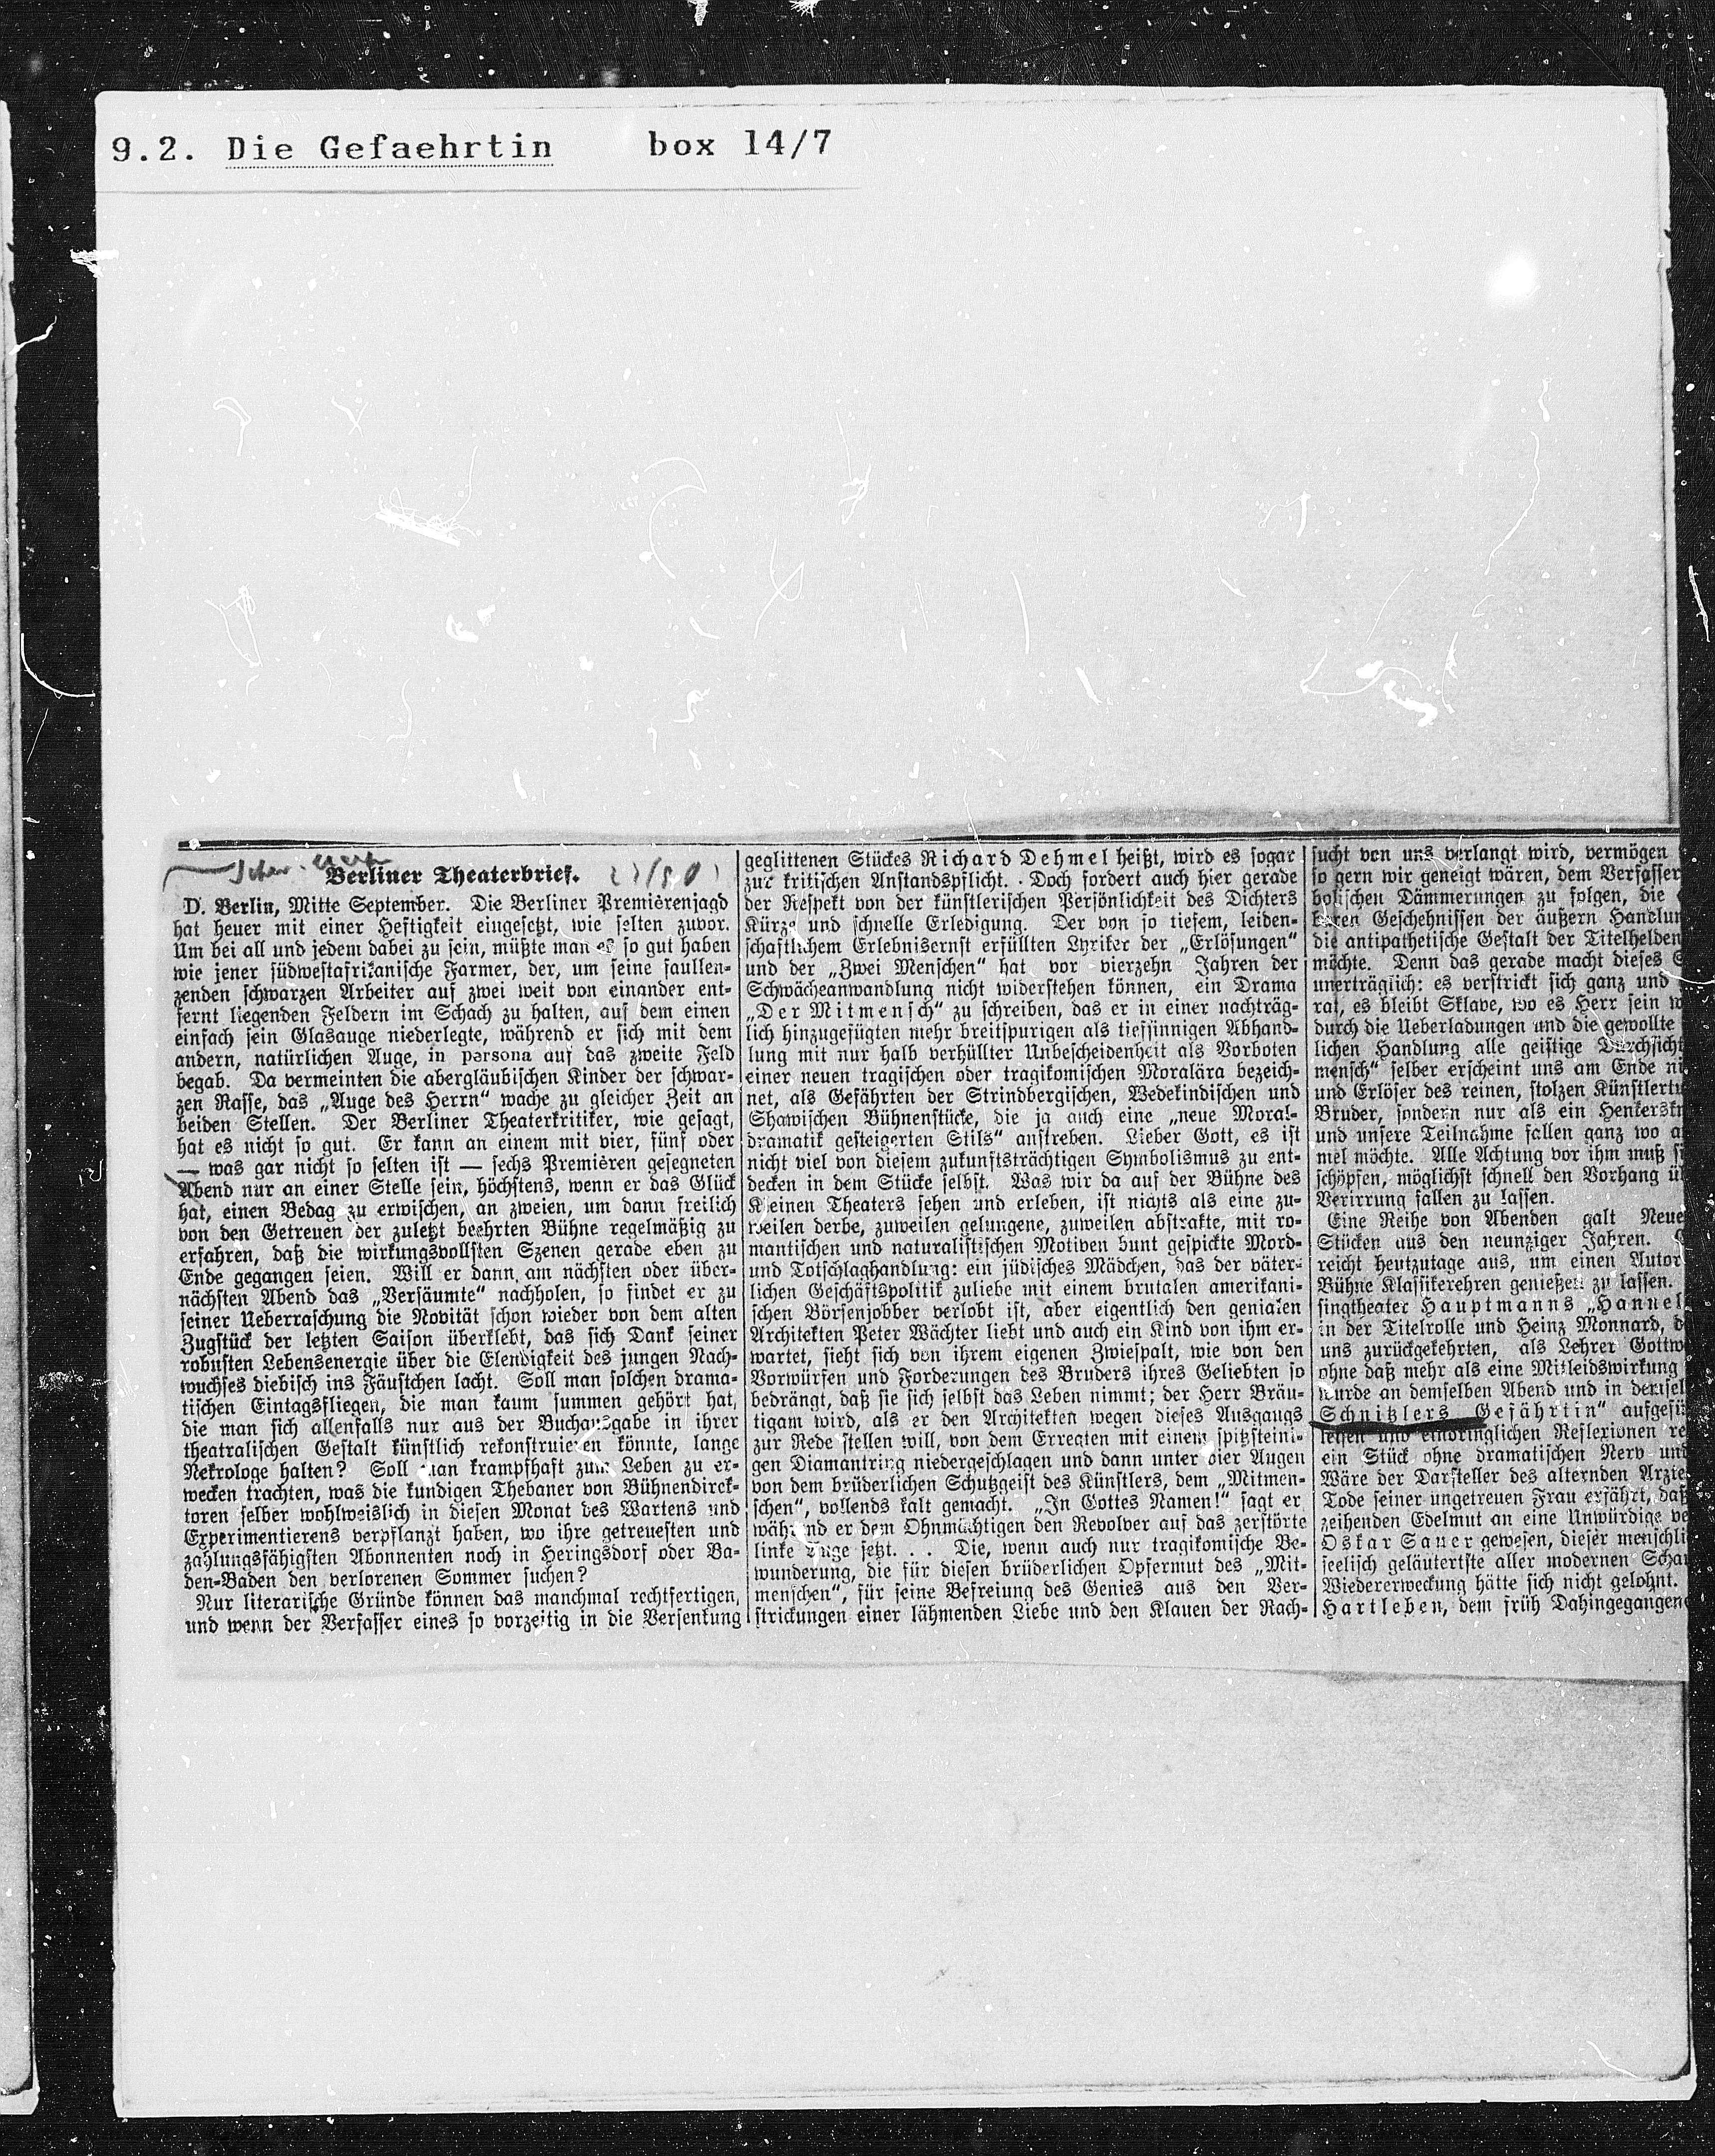 9.2. Die Gefaehrtin box 14/7
Berliner Theaterbrief.
D. Berlin, Mitte September. Die Berliner Premièrenjagd
hat heuer mit einer Heftigkeit eingesetzt, wie selten zuvor.
Um bei all und jedem dabei zu sein, müßte man es so gut haben
wie jener südwestafrikanische Farmer, der, um seine faullen-
zenden schwarzen Arbeiter auf zwei weit von einander ent-
fernt liegenden Feldern im Schach zu halten, auf dem einen
einfach sein Glasauge niederlegte, während er sich mit dem
andern, natürlichen Auge, in persona auf das zweite Feld
begab. Da vermeinten die abergläubischen Kinder der schwar-
zen Rasse, das „Auge des Herrn“ wache zu gleicher Zeit an
beiden Stellen. Der Berliner Theaterkritiker, wie gesagt,
hat es nicht so gut. Er kann an einem mit vier, fünf oder
— was gar nicht so selten ist — sechs Premièren gesegneten
Abend nur an einer Stelle sein, höchstens, wenn er das Glück
hat, einen Bedag zu erwischen, an zweien, um dann freilich
von den Getreuen der zuletzt beehrten Bühne regelmäßig zu
erfahren, daß die wirkungsvollsten Szenen gerade eben zu
Ende gegangen seien. Will er dann am nächsten oder über-
nächsten Abend das „Versäumte“ nachholen, so findet er zu
seiner Ueberraschung die Novität schon wieder von dem alten
Zugstück der letzten Saison überklebt, das sich Dank seiner
robusten Lebensenergie über die Elendigkeit des jungen Nach-
wuchses diebisch ins Fäustchen lacht. Soll man solchen drama-
tischen Eintagsfliegen, die man kaum summen gehört hat,
die man sich allenfalls nur aus der Buchausgabe in ihrer
theatralischen Gestalt künstlich rekonstruieren könnte, lange
Nekrologe halten? Soll man krampfhaft zum Leben zu er-
wecken trachten, was die kundigen Thebaner von Bühnendirek-
toren selber wohlweislich in diesen Monat des Wartens und
Experimentierens verpflanzt haben, wo ihre getreuesten und
zahlungsfähigsten Abonnenten noch in Heringsdorf oder Ba-
den-Baden den verlorenen Sommer suchen?
Nur literarische Gründe können das manchmal rechtfertigen,
und wenn der Verfasser eines so vorzeitig in die Versenkung
geglittenen Stückes Richard Dehmel heißt, wird es sogar
zur kritischen Anstandspflicht. Doch fordert auch hier gerade
der Respekt von der künstlerischen Persönlichkeit des Dichters
Kürze und schnelle Erledigung. Der von so tiefem, leiden-
schaftlichem Erlebnisernst erfüllten Lyriker der „Erlösungen“
und der „Zwei Menschen“ hat vor vierzehn Jahren der
Schwächeanwandlung nicht widerstehen können, ein Drama
„Der Mitmensch“ zu schreiben, das er in einer nachträg-
lich hinzugefügten mehr breitspurigen als tiefsinnigen Abhand-
lung mit nur halb verhüllter Unbescheidenheit als Vorboten
einer neuen tragischen oder tragikomischen Moralära bezeich-
net, als Gefährten der Strindbergischen, Wedekindischen und
Shawischen Bühnenstücke, die ja auch eine „neue Moral-
dramatik gesteigerten Stils“ anstreben. Lieber Gott, es ist
nicht viel von diesem zukunftsträchtigen Symbolismus zu ent-
decken in dem Stücke selbst. Was wir da auf der Bühne des
Kleinen Theaters sehen und erleben, ist nichts als eine zu-
weilen derbe, zuweilen gelungene, zuweilen abstrakte, mit ro-
mantischen und naturalistischen Motiven bunt gespickte Mord-
und Totschlaghandlung: ein jüdisches Mädchen, das der väter-
lichen Geschäftspolitik zuliebe mit einem brutalen amerikani-
schen Börsenjobber verlobt ist, aber eigentlich den genialen
Architekten Peter Wächter liebt und auch ein Kind von ihm er-
wartet, sieht sich von ihrem eigenen Zwiespalt, wie von den
Vorwürfen und Forderungen des Bruders ihres Geliebten so
bedrängt, daß sie sich selbst das Leben nimmt; der Herr Bräu-
tigam wird, als er den Architekten wegen dieses Ausgangs
zur Rede stellen will, von dem Erregten mit einem spitzsteini-
gen Diamantring niedergeschlagen und dann unter vier Augen
von dem brüderlichen Schutzgeist des Künstlers, dem „Mitmen-
schen“, vollends kalt gemacht. „In Gottes Namen!“ sagt er
während er dem Ohnmächtigen den Revolver auf das zerstörte
linke Auge setzt. . . Die, wenn auch nur tragikomische Be-
wunderung, die für diesen brüderlichen Opfermut des „Mit-
menschen“, für seine Befreiung des Genies aus den Ver-
strickungen einer lähmenden Liebe und den Klauen der Rach-
sucht von uns verlangt wird, vermögen
so gern wir geneigt wären, dem Verfasser
bolischen Dämmerungen zu folgen, die
baren Geschehnissen der äußern Handlun
die antipathetische Gestalt der Titelhelden
möchte. Denn das gerade macht dieses
unerträglich: es verstrickt sich ganz und
rat, es bleibt Sklave, wo es Herr sein w
durch die Ueberladungen und die gewollte
lichen Handlung alle geistige Durchsicht
mensch“ selber erscheint uns am Ende ni
und Erlöser des reinen, stolzen Künstlertu
Bruder, sondern nur als ein Henkerskn
und unsere Teilnahme fallen ganz wo a
mel möchte. Alle Achtung vor ihm muß si
schöpfen, möglichst schnell den Vorhang ü
Verirrung fallen zu lassen.
Eine Reihe von Abenden galt Neue
Stücken aus den neunziger Jahren.
reicht heutzutage aus, um einen Autor
Bühne Klassikerehren genießen zu lassen.
singtheater Hauptmanns „Hannel
in der Titelrolle und Heinz Monnard, d
uns zurückgekehrten, als Lehrer Gottw
ohne daß mehr als eine Mitleidswirkung
wurde an demselben Abend und in dersel
Schnitzlers Gefährtin“ aufgefü
und eindringlichen Reflexionen re
ein Stück ohne dramatischen Nerv und
Wäre der Darsteller des alternden Arzte
Tode seiner ungetreuen Frau erfährt, daß
zeihenden Edelmut an eine Unwürdige ve
Oskar Sauer gewesen, dieser menschli
seelisch geläutertste aller modernen Schau
Wiedererweckung hätte sich nicht gelohnt.
Hartleben, dem früh Dahingegangene